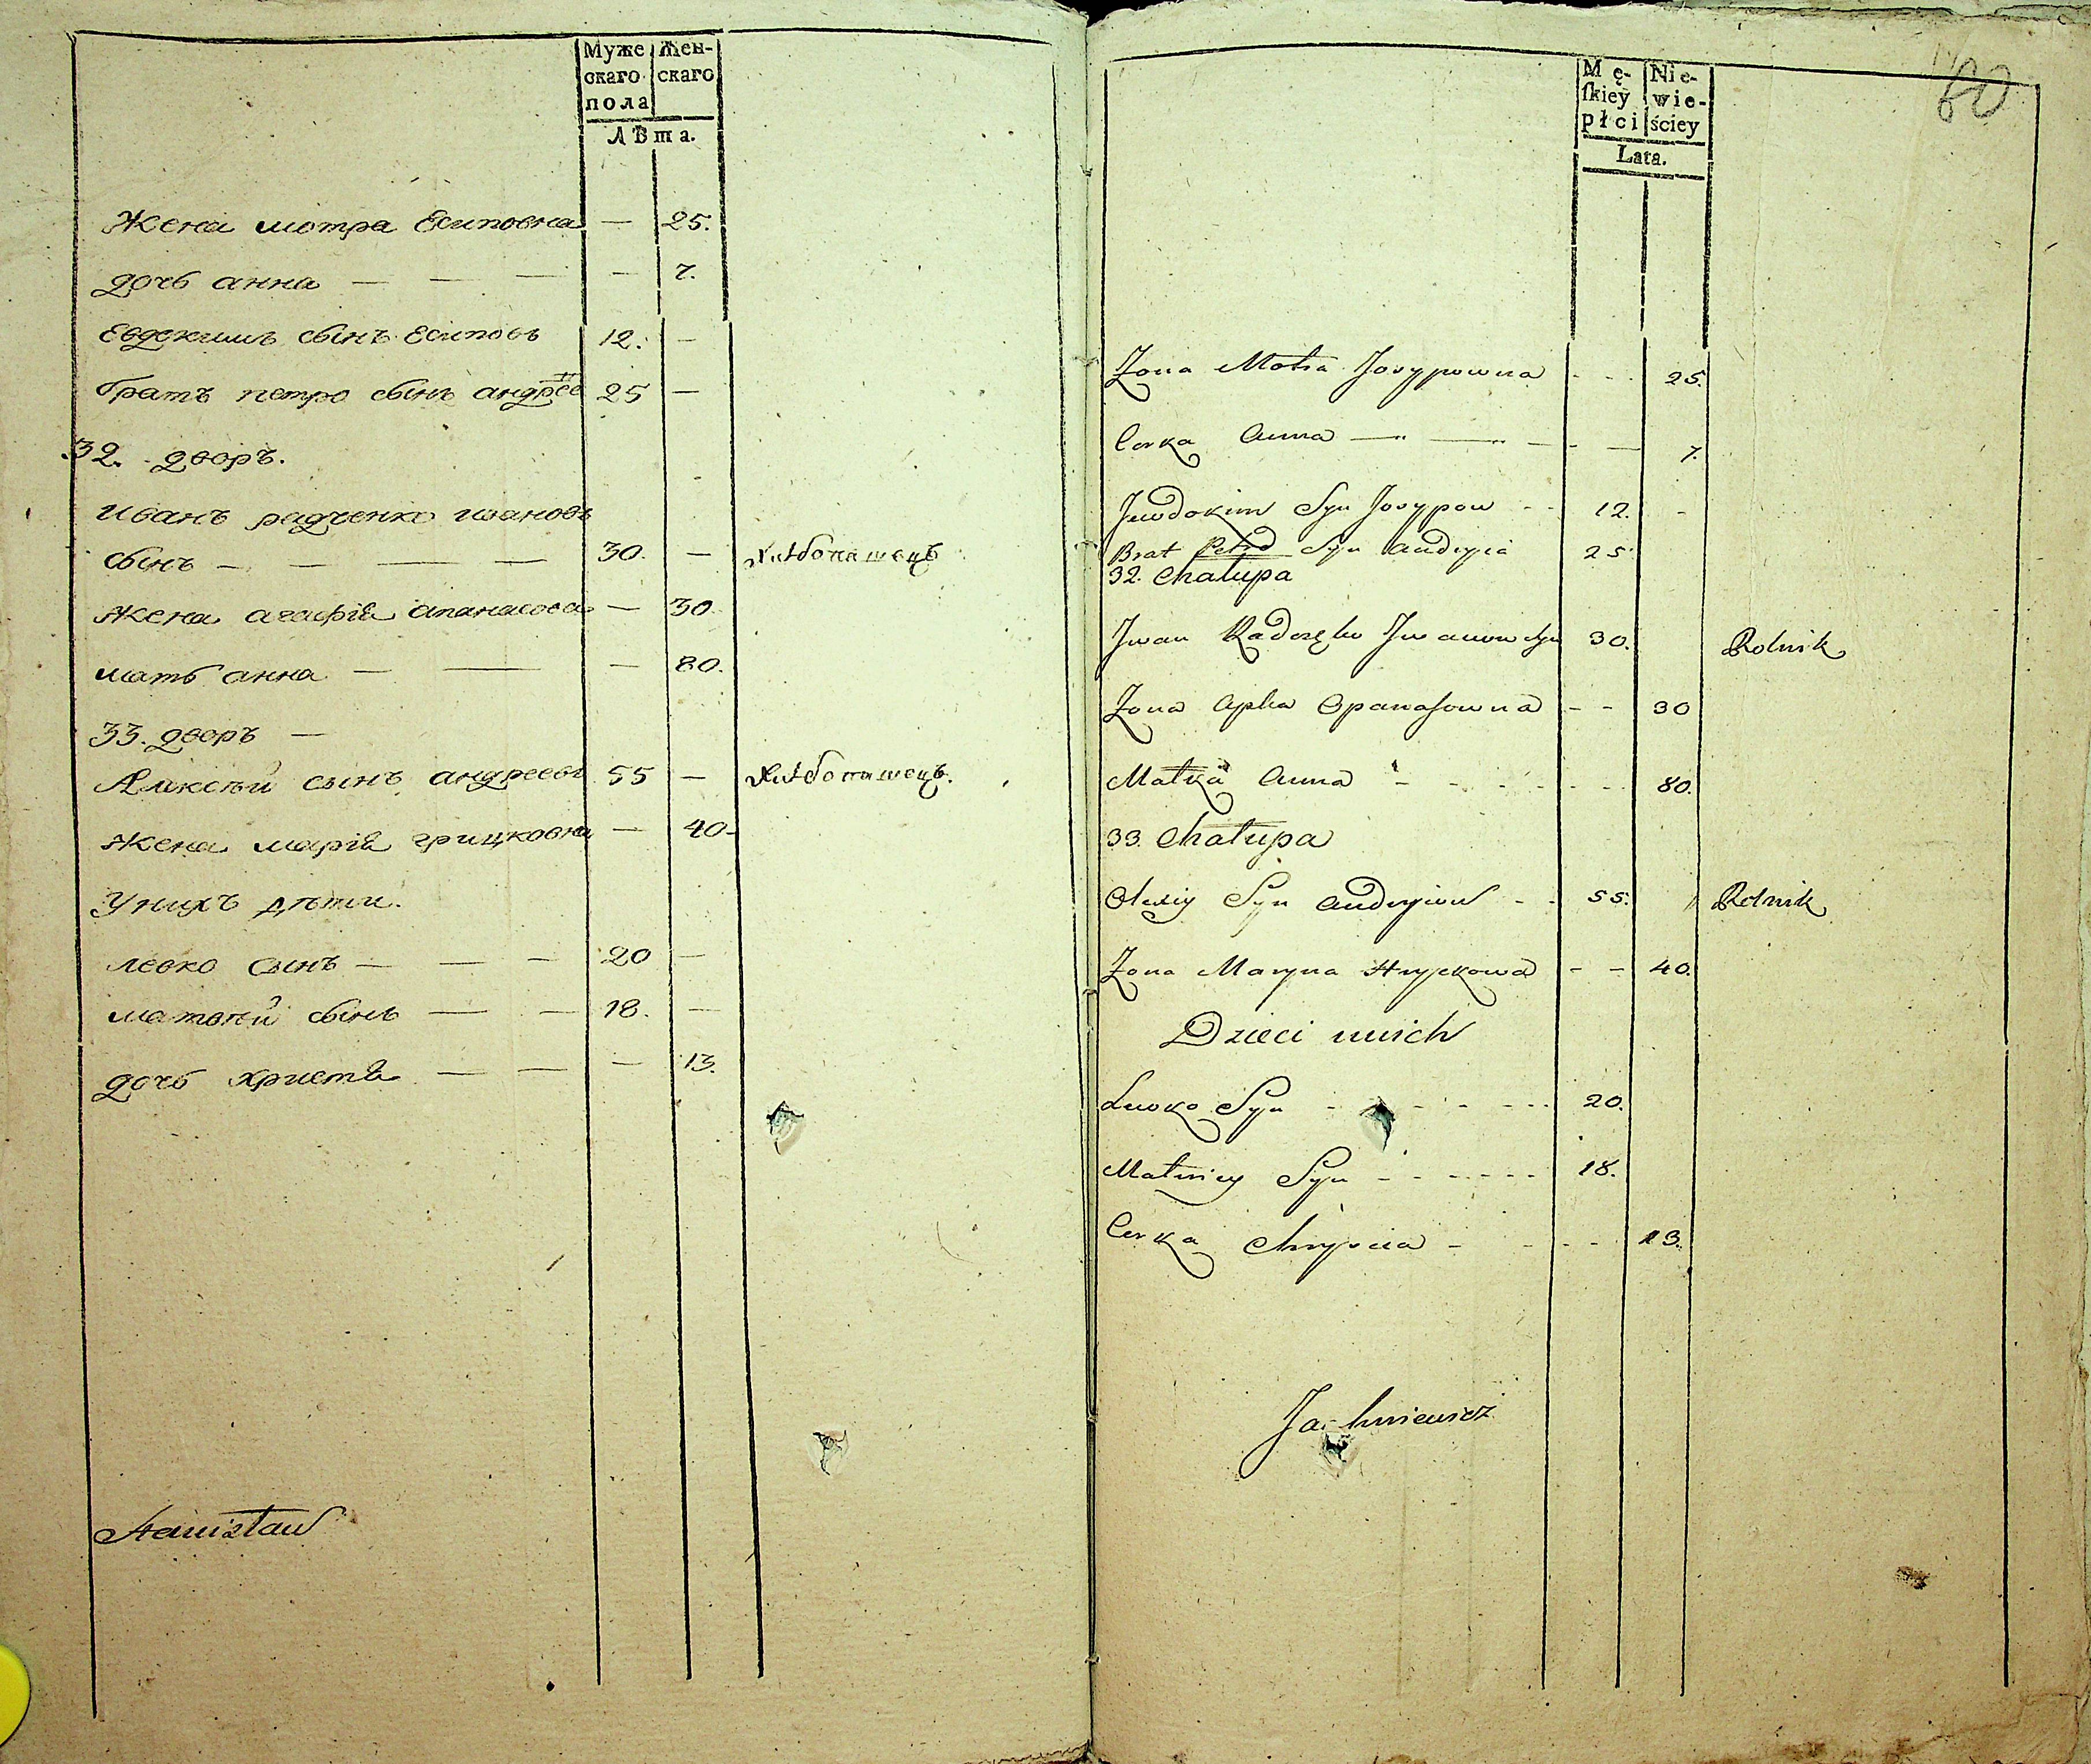 Муже Жен-
скаго скаго
пола
Лѣта.
Жена мотра Есиповна — 25.
дочь анна — — — — 7.
Евдокимъ сынъ Есиповъ 12. —
братъ петро сынъ андрее 25 —
32. дворъ.
Иванъ радченко ивановъ
сынъ — — — — 30. — хлѣбопашецъ
жена агафія апанасова — 30
мать анна — — — 80.
33. дворъ —
Аликсѣй сынъ андреевъ 55 — хлѣбопашецъ.
жена марія грицковна — 40-
У нихъ дѣти.
левко сынъ — — — 20 —
матвѣй сынъ — — 18. —
дочь христя — — — 13.
Stanisław
80
Mę- Nie-
ſkiey wie-
płci ściey
Lata.
Żona Motra Josypowna - - - 25.
Corka Anna — — — — 7.
Jewdokim Syn Josypow - - 12. -
Brat Petro Syn Andryia 25
32. Chałupa
Jwan Radczęko Jwanow Syn 30. Rolnik
Żona Apka Opanaſowna - - 30
Matka Anna - - - - - - 80.
33. Chałupa
Olexiy Syn Andryiow - - 55. Rolnik
Żona Maryna Hryckowa - - 40.
Dzieci u nich
Lewko Syn - - - - - 20.
Matwiey Syn - - - - - - 18.
Corka Chrysia - - - - 13.
Jachniewicz